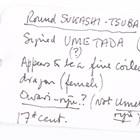 Round SUKASHI-TSUBA
Signed UMETADA
(?)
Appears to be a fine coiled
dragon (female)
Owari-ryū? (not Umetada
17th cent.